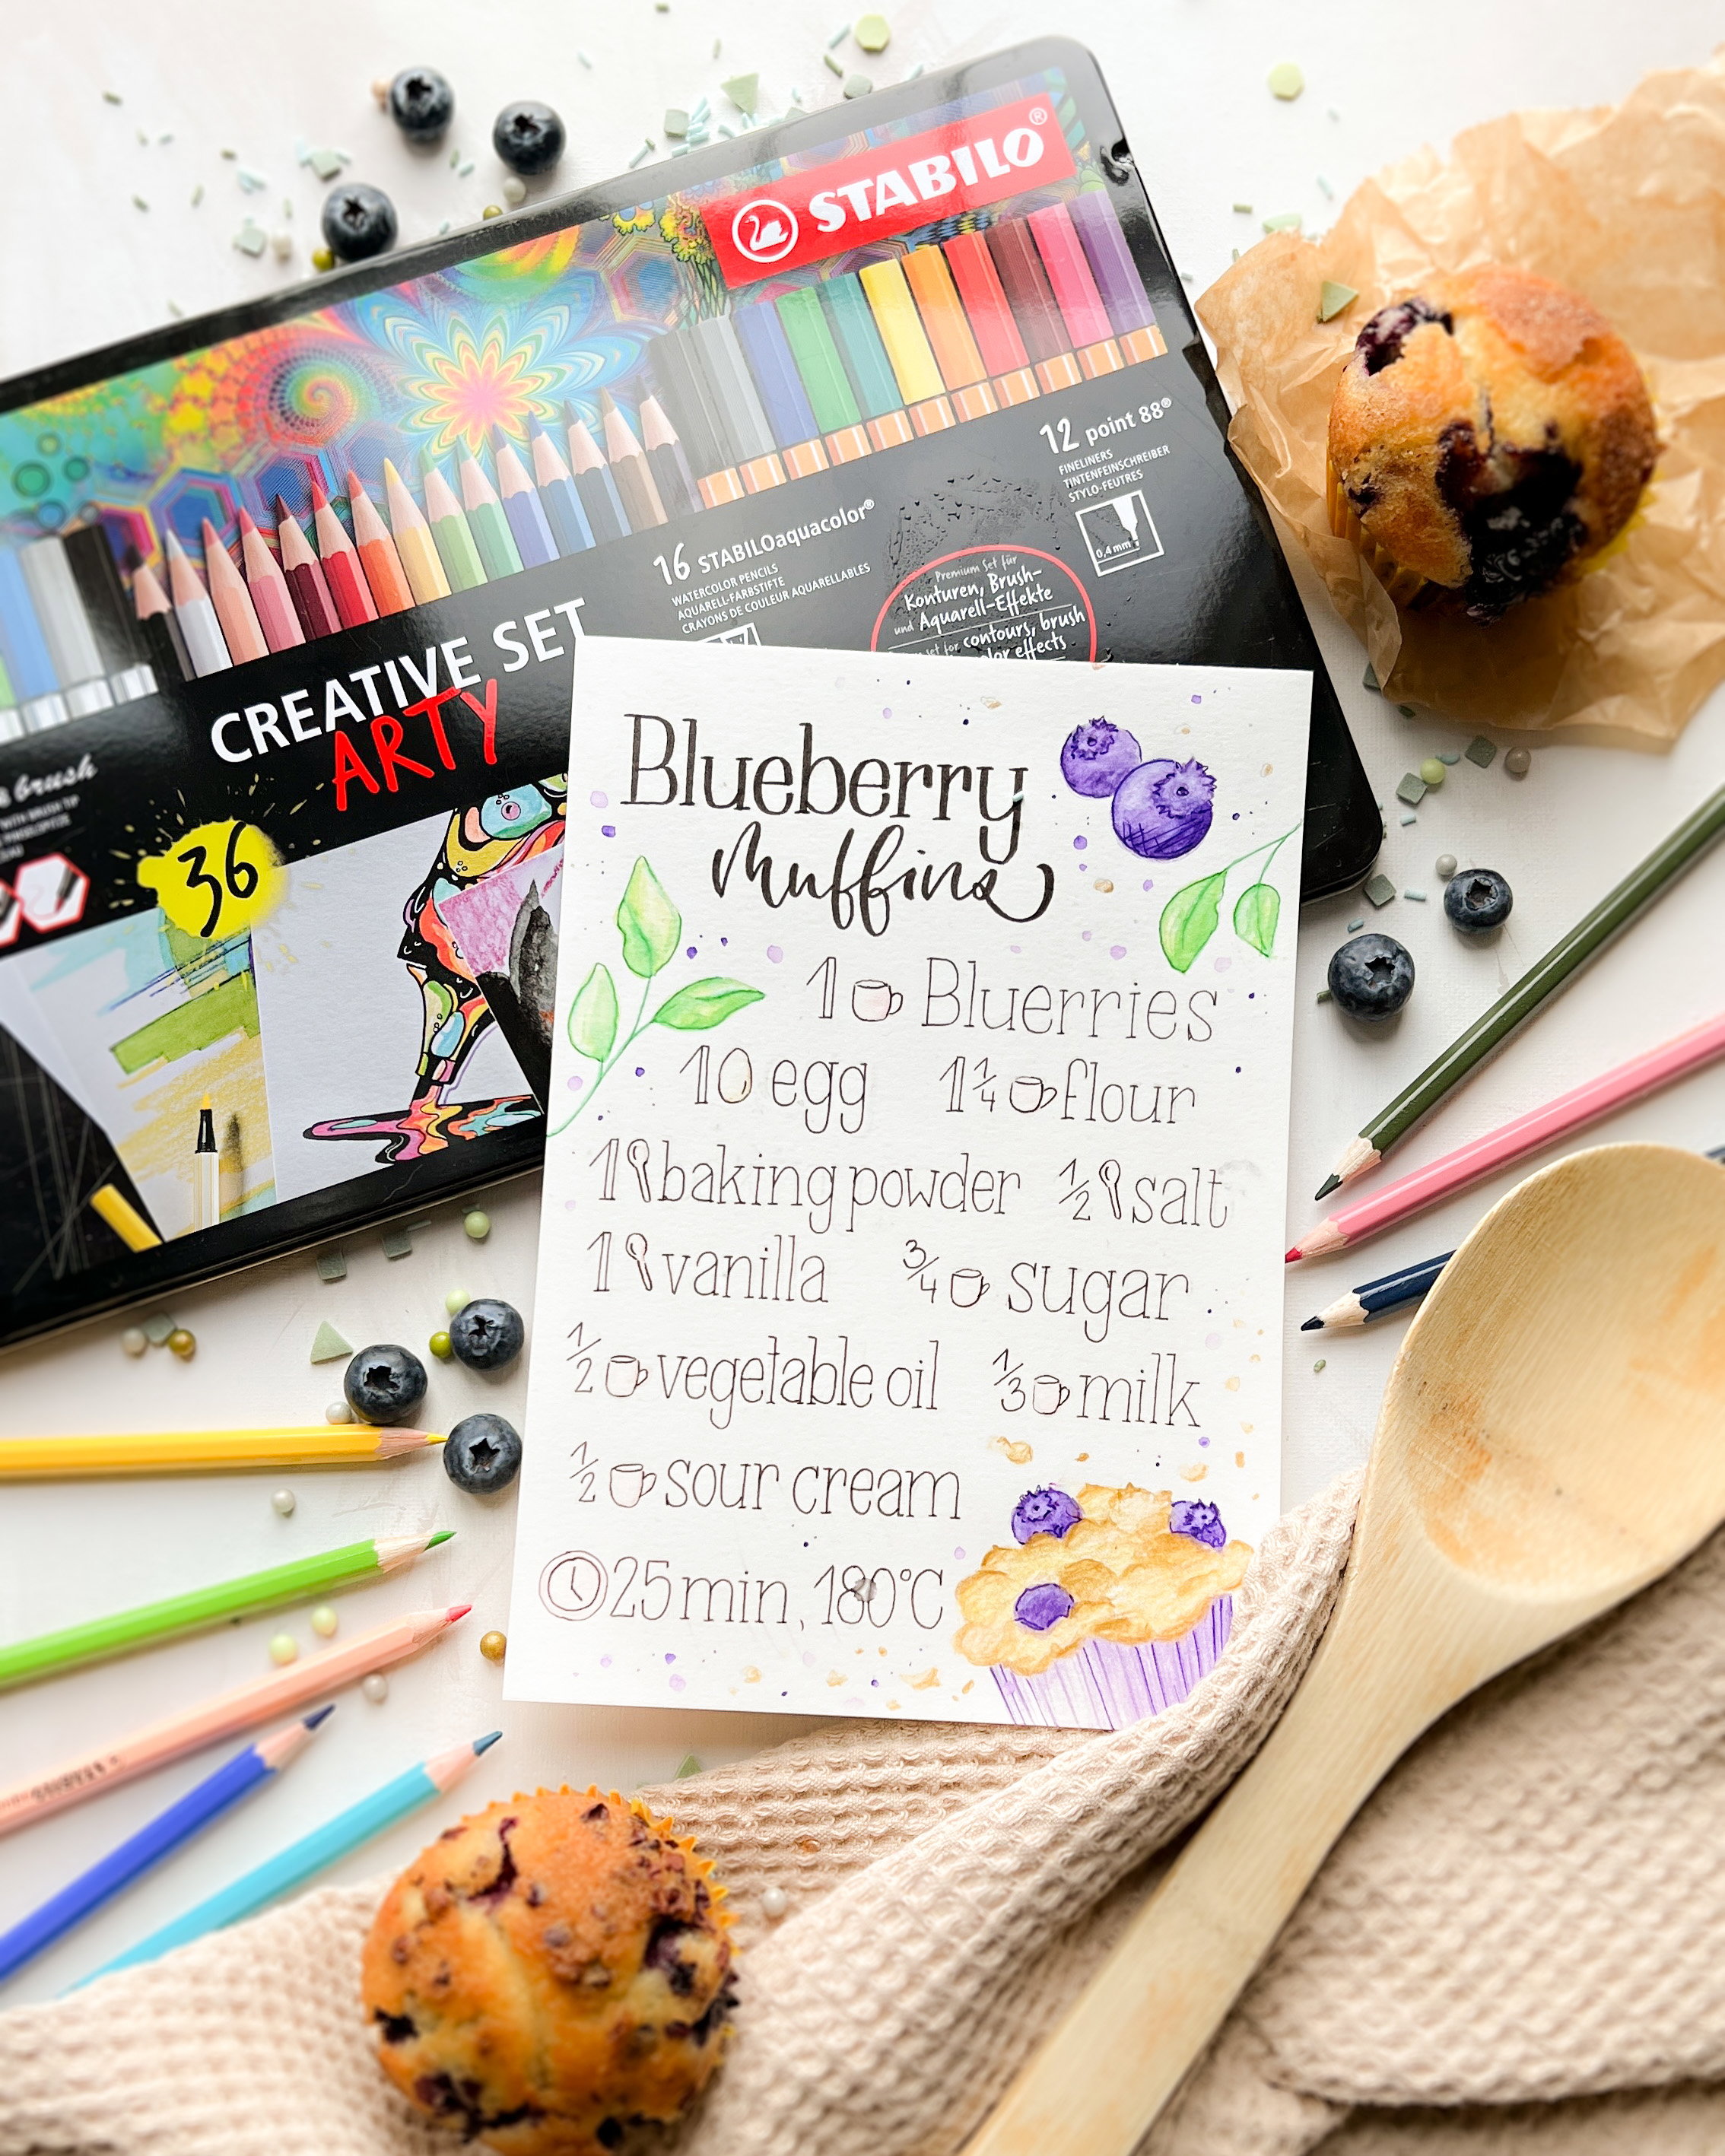 STABILO®
12 point 88®
FINELINERS
TINTENFEINSCHREIBER
STYLO-FEUTRES
0,4 mm
16 STABILOaquacolor®
WATERCOLOR PENCILS
AQUARELL-FARBSTIFTE
CRAYONS DE COULEUR AQUARELLABLES
Premium Set für
Konturen, Brush-
und Aquarell-Effekte
set for contours, brush
effects
CREATIVE SET
ARTY
brush
WITH BRUSH TIP
36
Blueberry
Muffins
1 Bluerries
1 egg 1 1/4 flour
1 baking powder 1/2 salt
1 vanilla 3/4 sugar
1/2 vegetable oil 1/3 milk
1/2 sour cream
25 min, 180°C